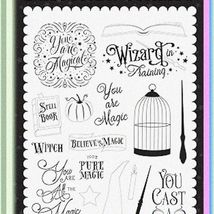 You
are
Magical
Wizard
in
Training
Spell
Book
You
are
Magic
Witch
Believe in Magic
100%
Pure
Magic
You
Are
All
the
Magic
You
Cast